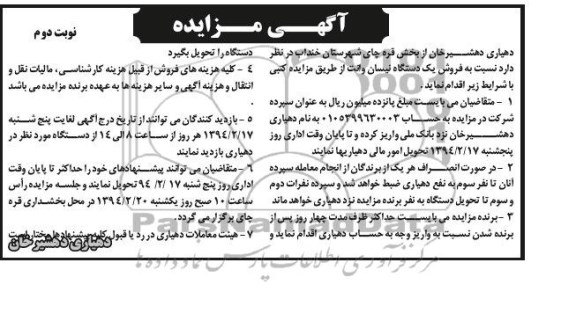 آگهـی مــزایده
نوبت دوم
دهیاری دهشــیرخان از بخش قره چای شهرستان خنداب در نظر
دارد نسبت به فروش یک دستگاه نیسان وانت از طریق مزایده کتبی
با شرایط زیر اقدام نماید .
۱ - متقاضیان می بایست مبلغ پانزده میلیون ریال به عنوان سپرده
شرکت در مزایده به حساب ۰۱۰۵۲۹۹۶۳۰۰۰۳ به نام دهیاری
دهشـــیرخان نزد بانک ملی واریز کرده و تا پایان وقت اداری روز
پنجشنبه ۱۳۹۴/۲/۱۷ تحویل امور مالی دهیاریها نمایند
۲ - در صورت انصــراف هر یک از برندگان از انجام معامله سپرده
آنان تا نفر سوم به نفع دهیاری ضبط خواهد شد و سپرده نفرات دوم
و سوم تا تحویل دستگاه به نفر برنده مزایده نزد دهیاری خواهد ماند
۳ - برنده مزایده می بایســت حداکثر ظرف مدت چهار روز پس از
برنده شدن نسبت به واریز وجه به حساب دهیاری اقدام نماید و
دستگاه را تحویل بگیرد
۴ - کلیه هزینه های فروش از قبیل هزینه کارشناسی، مالیات نقل و
انتقال و هزینه آگهی و سایر هزینه ها به عهده برنده مزایده می باشد
.
۵ - بازدید کنندگان می توانند از تاریخ درج آگهی لغایت پنج شــنبه
۱۳۹۴/۲/۱۷ هر روز از ساعت ۸ الی ۱۴ از دستگاه مورد نظر در
دهیاری بازدید نمایند
۶ - متقاضیان می توانند پیشنهادهای خود را حداکثر تا پایان وقت
اداری روز پنج شنبه ۹۴/۲/۱۷ تحویل نمایند و جلسه مزایده رأس
ساعت ۱۰ صبح روز یکشنبه ۱۳۹۴/۲/۲۰ در محل بخشداری قره
چای برگزار می گردد.
۷ - هیئت معاملات دهیاری در رد یا قبول کلیه پیشنهادها مختار است
دهیاری دهشیرخان
مرکز فرآوری اطلاعات پارس نماد داده ها